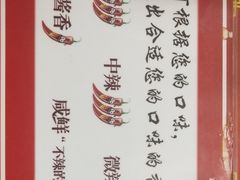 根据您的口味,
出合适您的口味的
中辣
微
酱香
咸鲜"不辣的